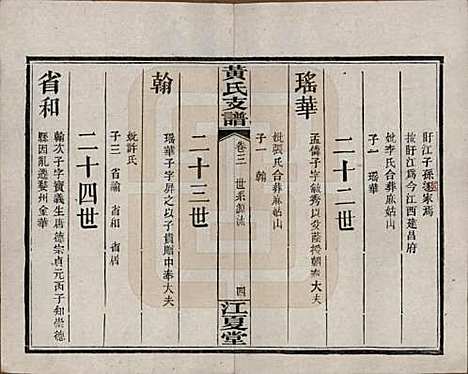 盱江子孫家焉
按盱江爲今江西建昌府
妣李氏合葬麻姑山
子一 瑤華
二十二世
瑤華
孟儒子字敏秀以父蔭授朝奉大夫
妣張氏合葬麻姑山
子一 翰
黃氏支譜
卷三 世系源流
四
江夏堂
二十三世
翰
瑤華子字屏之以子貴贈中奉大夫
妣許氏
子三 省諭 省和 省居
二十四世
省和
翰次子字寶義生唐德宗貞元丙子知崇德
縣因亂遷婺州金華